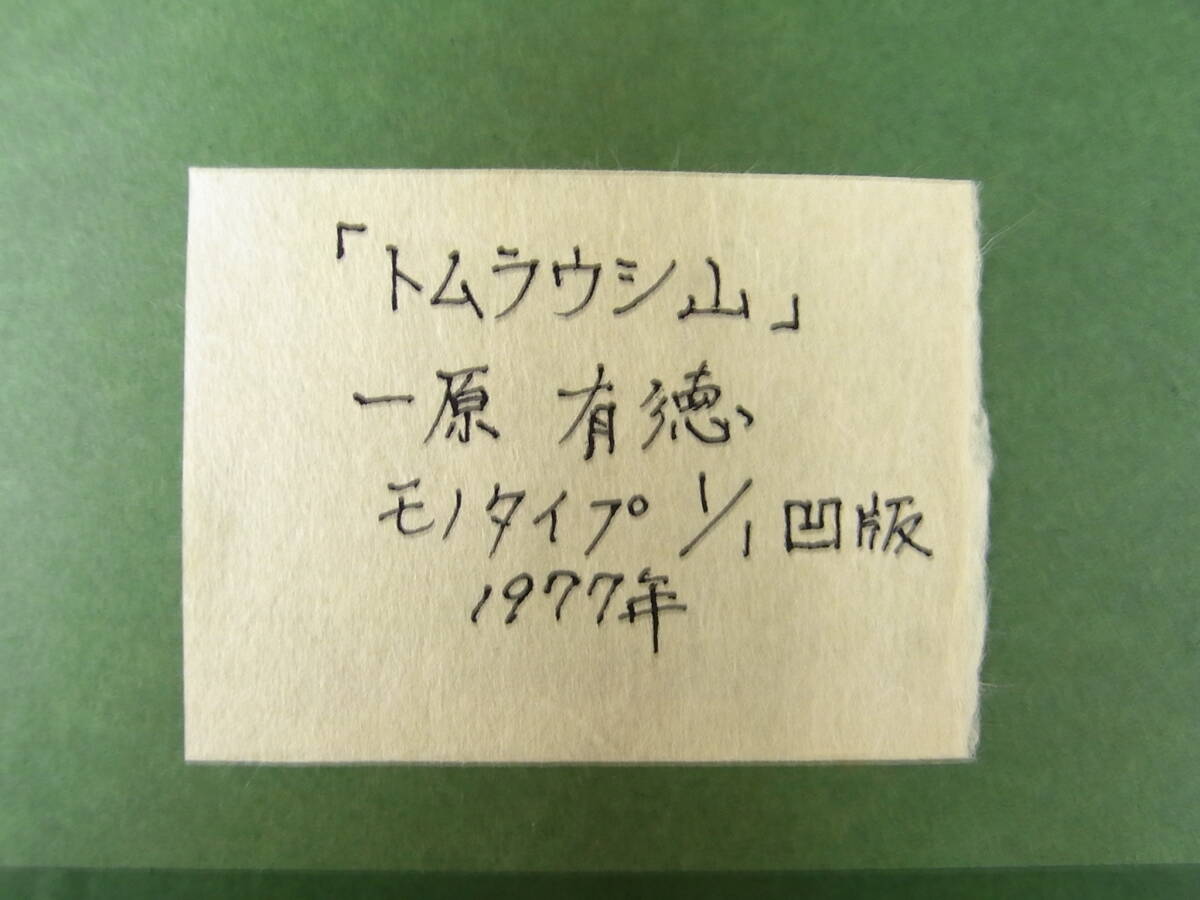 「トムラウシ山」
一原 有徳
モノタイプ 1/1 凹版
1977年